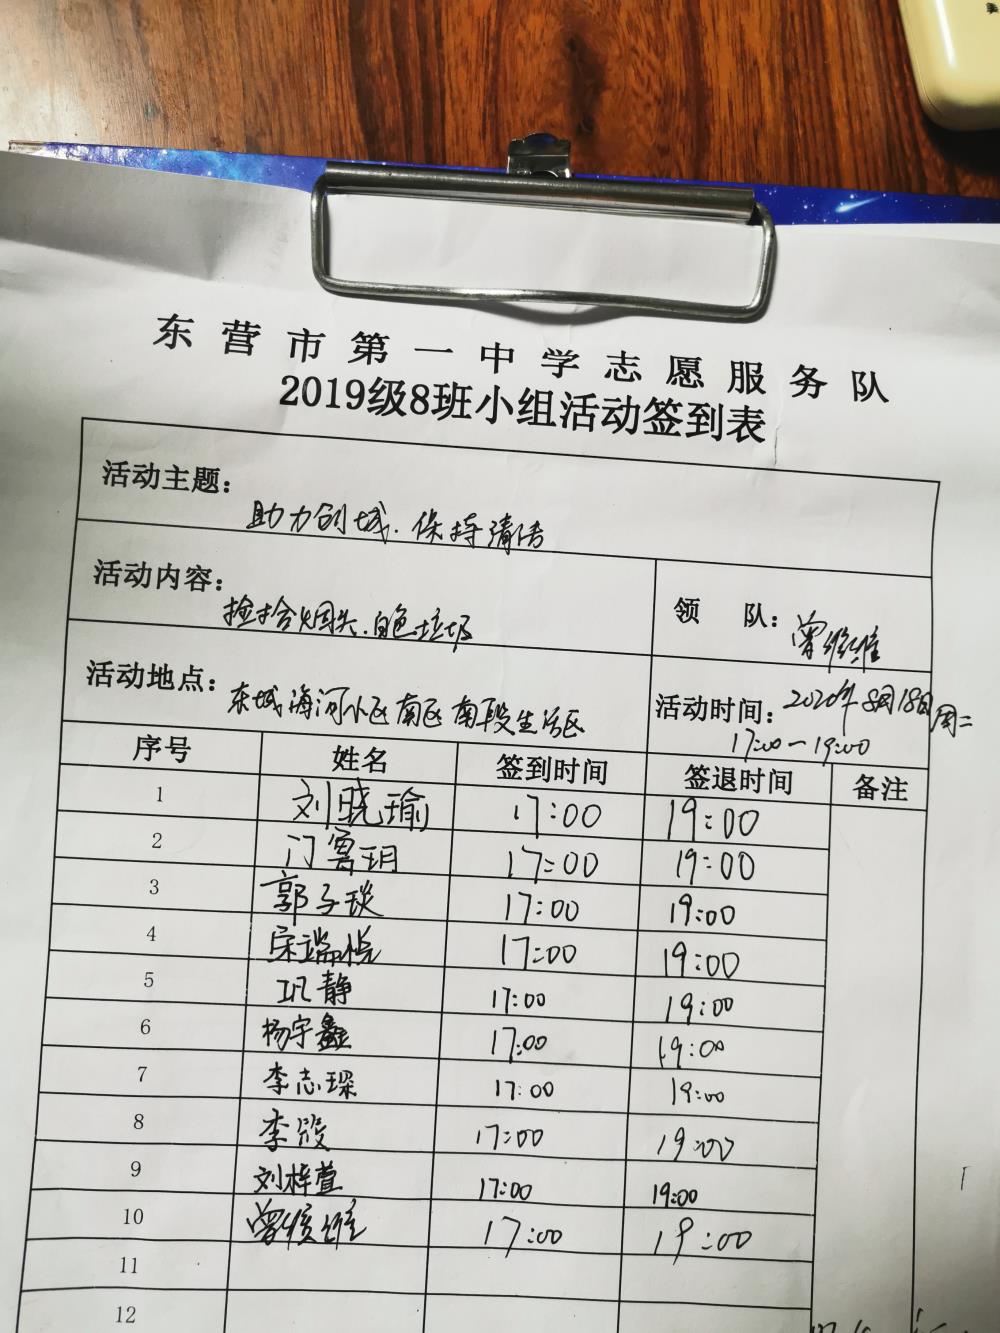 东营市第一中学志愿服务队
2019级8班小组活动签到表
活动主题：
助力创城.保持清洁
活动内容：
捡拾烟头.白色垃圾
领 队：
曾维维
活动地点：
东城海河小区南区南段生活区
活动时间：2020年8月18日周二
17:00-19:00
序号 姓名 签到时间 签退时间 备注
1 刘晓瑜 17:00 19:00
2 门鲁玥 17:00 19:00
3 郭子琰 17:00 19:00
4 宋端悦 17:00 19:00
5 巩静 17:00 19:00
6 杨宇鑫 17:00 19:00
7 李志琛 17:00 19:00
8 李毅 17:00 19:00
9 刘梓萱 17:00 19:00
10 曾维维 17:00 19:00
11
12